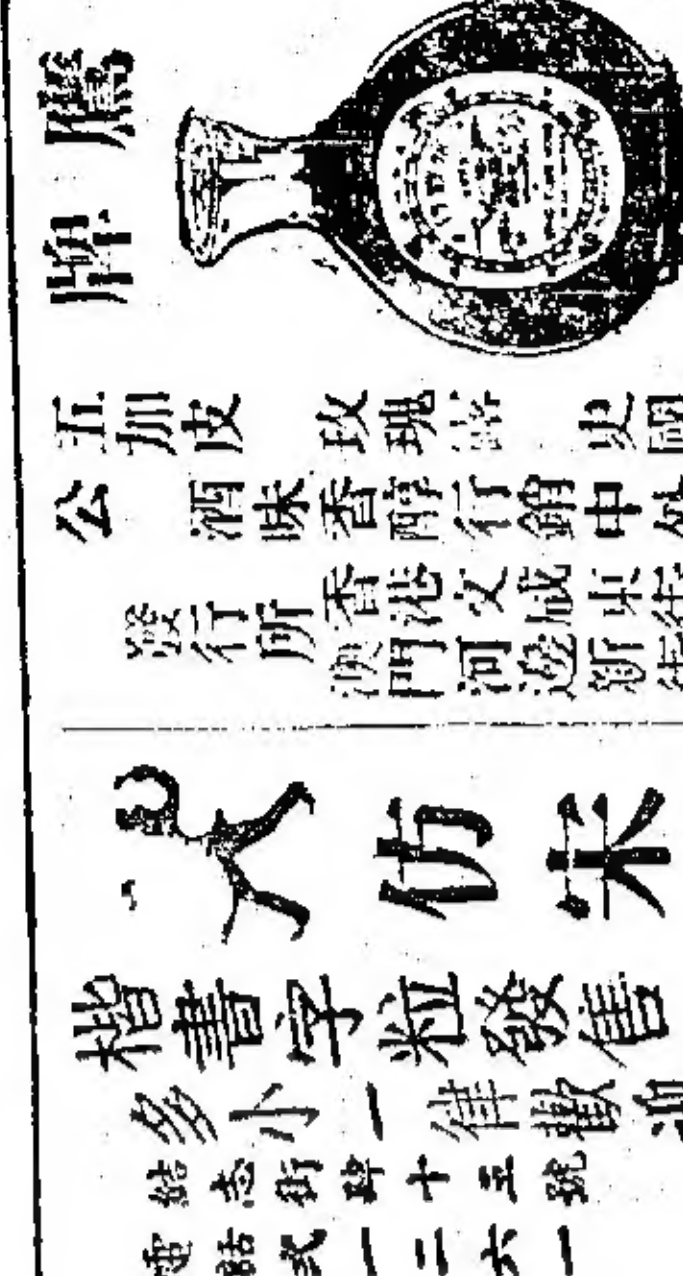 鷹牌
五加皮 玫瑰露 史國
公 酒味香醇行銷中
發行所 香港文咸東街
澳門河邊新街
楷書字粒發售
多小一律歡迎
結志街肆十五號
電話弍一二六一